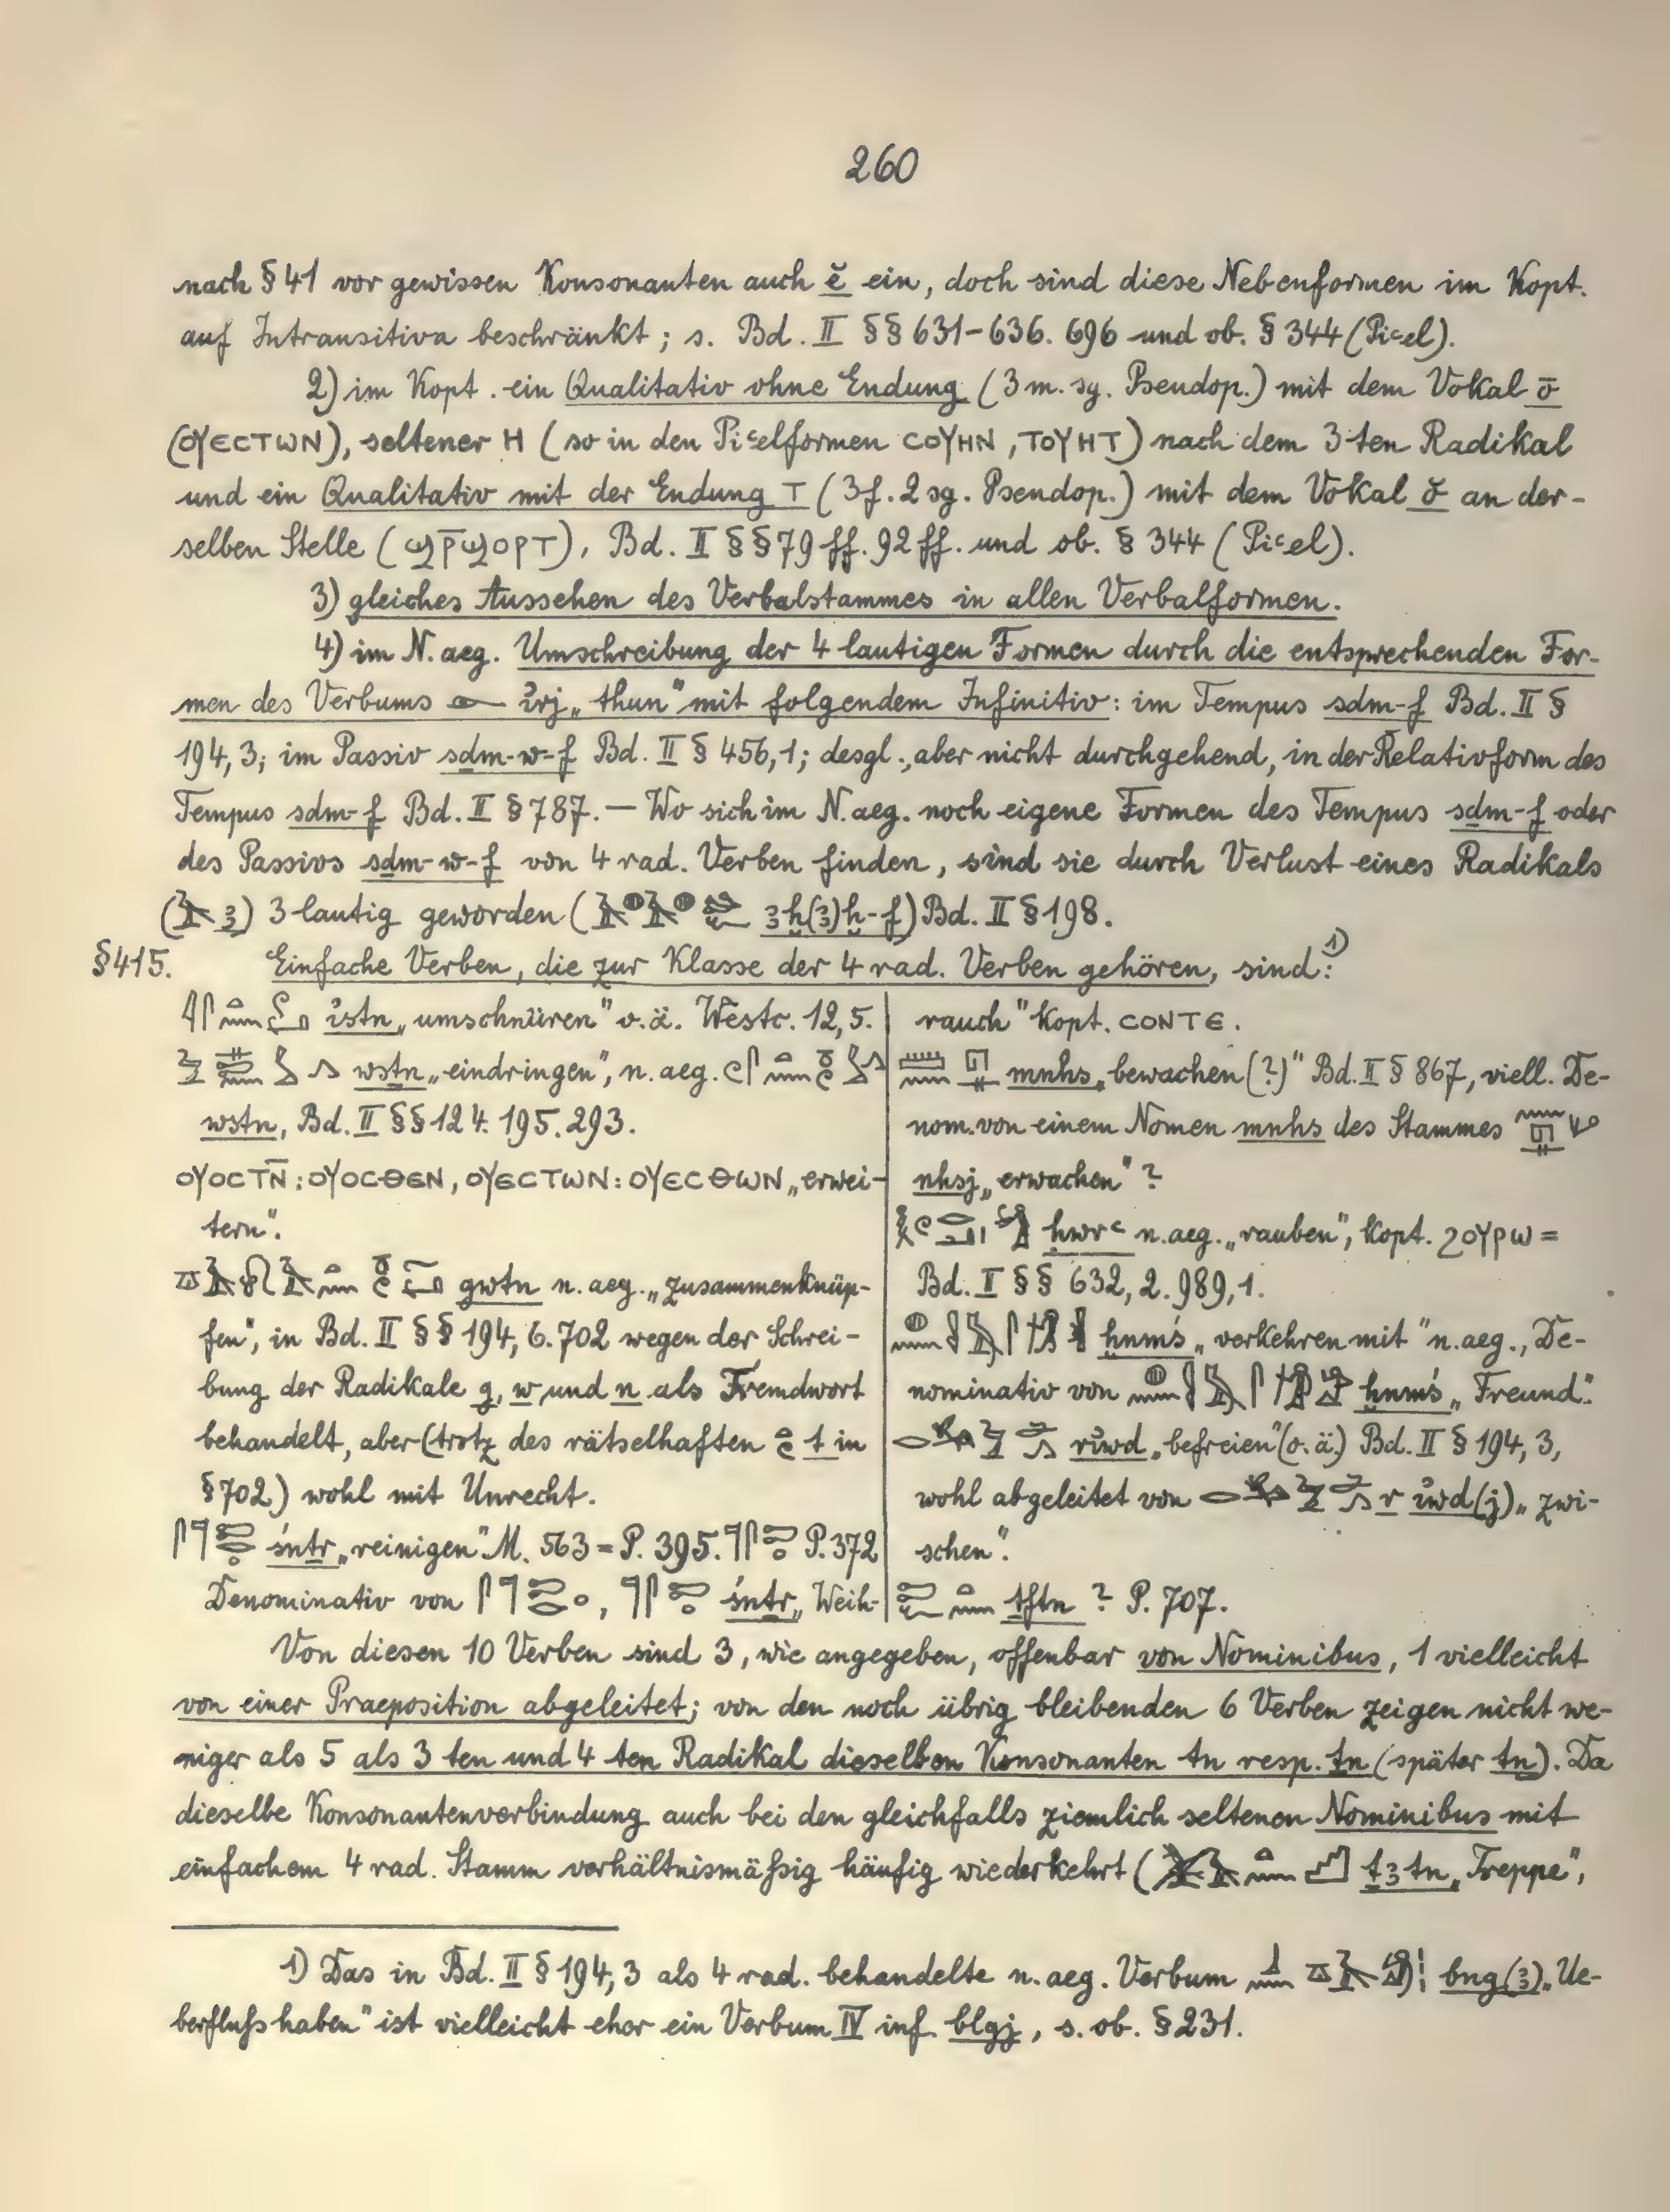 260
nach § 41 vor gewissen Konsonanten auch ĕ ein, doch sind diese Nebenformen im Kopt.
auf Intransitiva beschränkt; s. Bd. II §§ 631-636. 696 und ob. § 344 (Piꜥel).
2) im Kopt. ein Qualitativ ohne Endung (3 m. sg. Pseudop.) mit dem Vokal ō
(ⲟⲩⲉⲥⲧⲱⲛ), seltener ⲏ (so in den Piꜥelformen ⲥⲟⲩⲏⲛ, ⲧⲟⲩⲏⲧ) nach dem 3ten Radikal
und ein Qualitativ mit der Endung ⲧ (3 f. 2 sg. Pseudop.) mit dem Vokal ŏ an der-
selben Stelle (ϣⲣ̅ϣⲟⲣⲧ), Bd. II §§ 79 ff. 92 ff. und ob. § 344 (Piꜥel).
3) gleiches Aussehen des Verbalstammes in allen Verbalformen.
4) im N. aeg. Umschreibung der 4 lautigen Formen durch die entsprechenden For-
men des Verbums ꞽrj „thun" mit folgendem Infinitiv: im Tempus sḏm-f Bd. II §
194, 3; im Passiv sḏm-w-f Bd. II § 456, 1; desgl., aber nicht durchgehend, in der Relativform des
Tempus sḏm-f Bd. II § 787. — Wo sich im N. aeg. noch eigene Formen des Tempus sḏm-f oder
des Passivs sḏm-w-f von 4 rad. Verben finden, sind sie durch Verlust eines Radikals
(ꜣ) 3 lautig geworden (ꜣḫ(ꜣ)ḫ-f) Bd. II § 198.
§ 415. Einfache Verben, die zur Klasse der 4 rad. Verben gehören, sind: 1)
ꞽstn „umschnüren" o. ä. Westc. 12, 5.
wstn „eindringen", n. aeg.
wstn, Bd. II §§ 124. 195. 293.
ⲟⲩⲟⲥⲧⲛ̅: ⲟⲩⲟⲥⲑⲉⲛ, ⲟⲩⲉⲥⲧⲱⲛ: ⲟⲩⲉⲥⲑⲱⲛ „erwei-
tern".
gwtn n. aeg. „zusammenknüp-
fen", in Bd. II §§ 194, 6. 702 wegen der Schrei-
bung der Radikale g, w und n als Fremdwort
behandelt, aber (trotz des rätselhaften t in
§ 702) wohl mit Unrecht.
śnṯr „reinigen" M. 563 = P. 395. P. 372
Denominativ von , śnṯr „Weih-
rauch" kopt. ⲥⲟⲛⲧⲉ.
mnhs „bewachen (?)" Bd. II § 867, viell. De-
nom. von einem Nomen mnhs des Stammes
nhsj „erwachen"?
ḥwrꜥ n. aeg. „rauben", kopt. ϩⲟⲩⲣⲱ =
Bd. II §§ 632, 2. 989, 1.
ḫnmś „verkehren mit" n. aeg., De-
nominativ von ḫnmś „Freund".
rꞽwd „befreien" (o. ä.) Bd. II § 194, 3,
wohl abgeleitet von r ꞽwd(j) „zwi-
schen".
ṯftn ? P. 707.
Von diesen 10 Verben sind 3, wie angegeben, offenbar von Nominibus, 1 vielleicht
von einer Praeposition abgeleitet; von den noch übrig bleibenden 6 Verben zeigen nicht we-
niger als 5 als 3 ten und 4 ten Radikal dieselben Konsonanten tn resp. ṯn (später tn). Da
dieselbe Konsonantenverbindung auch bei den gleichfalls ziemlich seltenen Nominibus mit
einfachem 4 rad. Stamm verhältnismäßig häufig wiederkehrt (ṯꜣtn „Treppe",
1) Das in Bd. II § 194, 3 als 4 rad. behandelte n. aeg. Verbum bng(ꜣ) „Ue-
berfluß haben" ist vielleicht eher ein Verbum IV inf. blgj, s. ob. § 231.